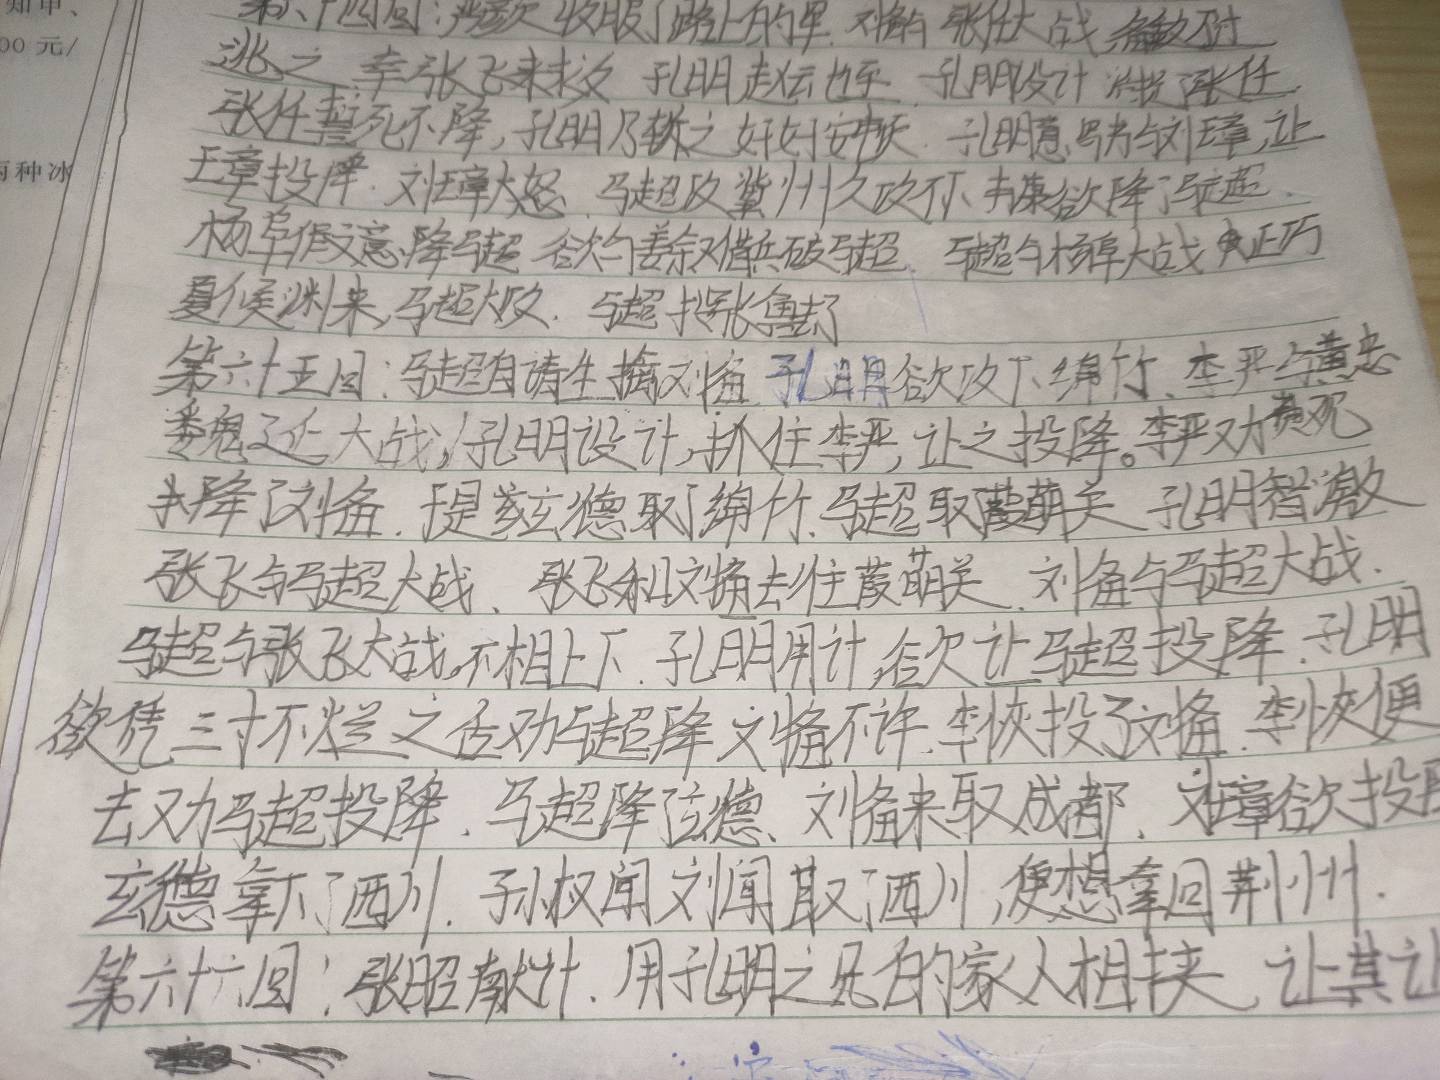 知甲、
00元/
两种冰
第六十四回：严颜 收服了路上的军 刘备 张任大战 备敌不过
逃之 幸张飞来救 孔明赵云也至 孔明设计 捉了张任.
张任誓死不降，孔明乃斩之 好好安 孔明 与刘璋，让
璋投降. 刘璋大怒. 马超攻冀州久攻不下 韦康欲降了马超.
杨阜假意降马超 欲与姜叙借兵破马超. 马超与杨阜大战 正巧
夏侯渊来，马超大败. 马超投张鲁去了
第六十五回：马超自请生擒刘备 孔明欲攻下绵竹、李严与黄忠
魏延大战，孔明设计，抓住李严，让之投降。李严劝费观
降了刘备. 于是玄德取了绵竹. 马超取葭萌关 孔明智激
张飞与马超大战、 张飞和刘备去住葭萌关. 刘备与马超大战.
马超与张飞大战，不相上下. 孔明用计，欲让马超投降. 孔明
欲凭三寸不烂之舌劝马超降 刘备不许. 李恢投了刘备. 李恢便
去劝马超投降. 马超降玄德、刘备来取成都. 刘璋欲投降
玄德拿下了西川. 孙权闻刘闻取了西川，便想拿回荆州.
第六十六回：张昭献计. 用孔明之兄的家人相挟 让其让